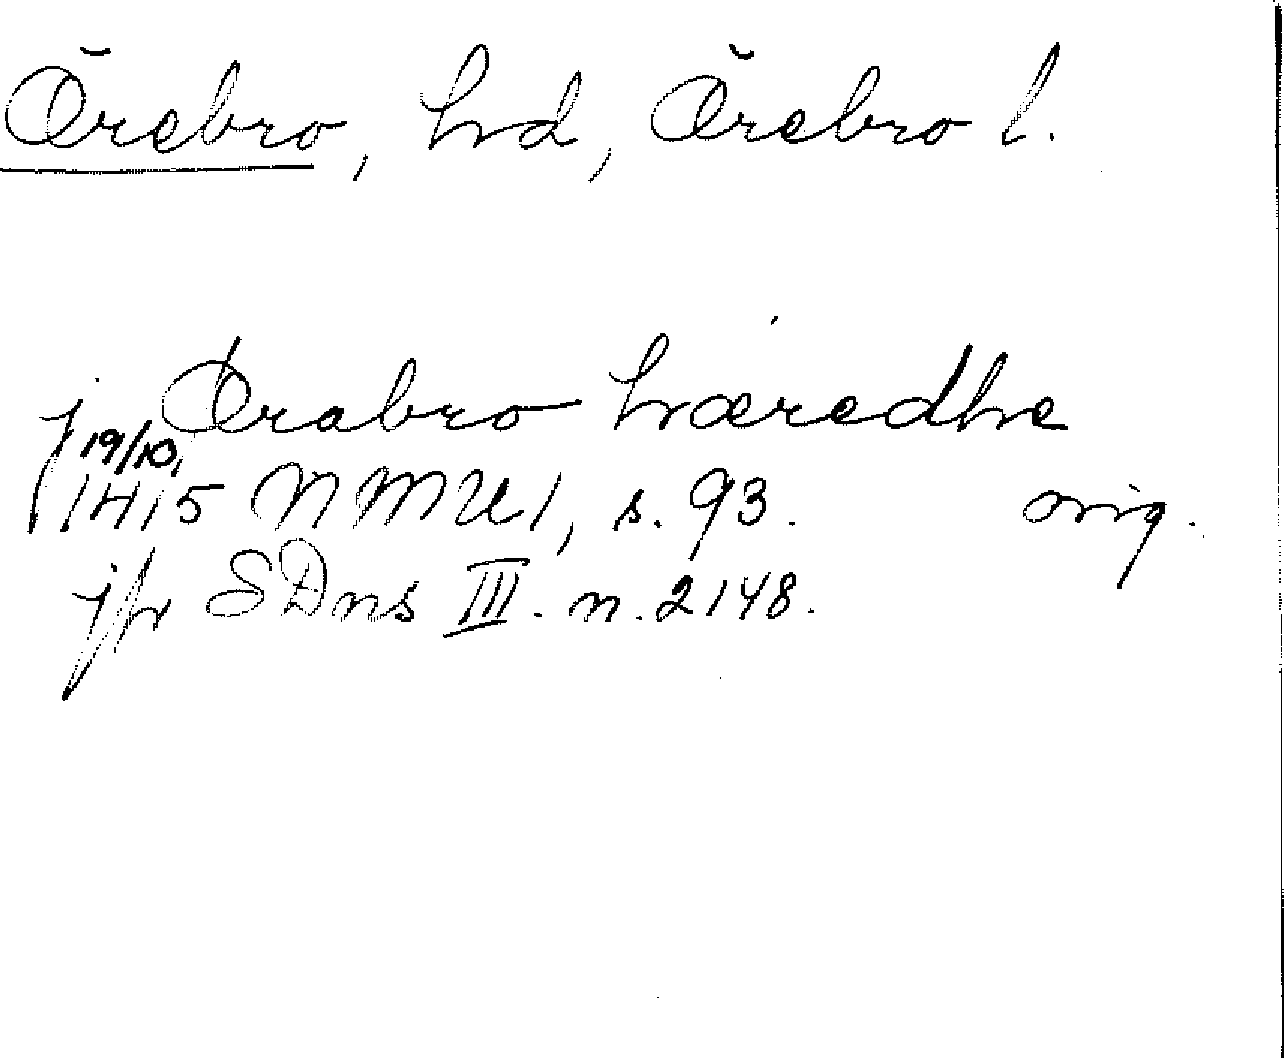 Örebro, hd, Örebro l.
j Ørabro hæredhe
19/10
1415 NMU 1, s. 93. orig.
jfr SDns III. n. 2148.